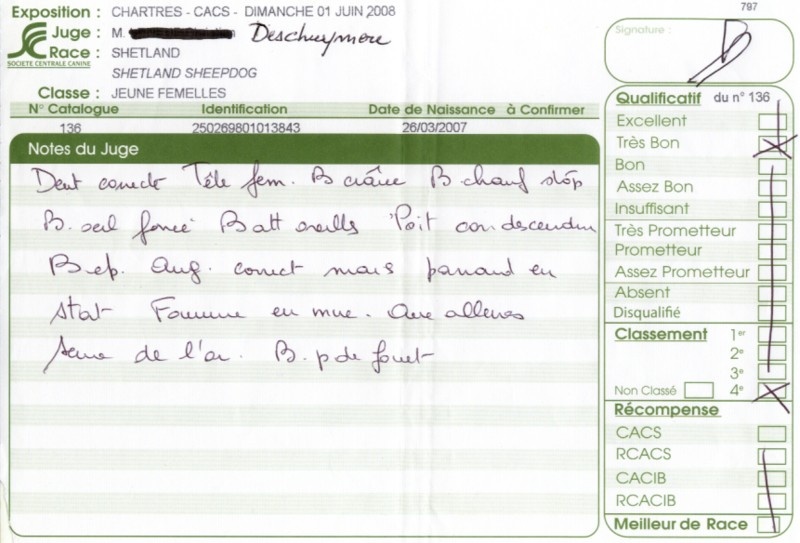 797
Exposition : CHARTRES - CACS - DIMANCHE 01 JUIN 2008
Juge : M. Deschuymere
Race : SHETLAND
SOCIETE CENTRALE CANINE
SHETLAND SHEEPDOG
Classe : JEUNE FEMELLES
N° Catalogue Identification Date de Naissance à Confirmer
136 250269801013843 26/03/2007
Notes du Juge
Dent correcte Tête fem. B crâne B. chanf stop
B. oeil foncé B att oreilles Poit
B. ep. Ang. correct mais panard en
stat Fourrure en mue. Aux allures
serre de l'ar. B. p de fouet
Signature :
Qualificatif du n° 136
Excellent
Très Bon
Bon
Assez Bon
Insuffisant
Très Prometteur
Prometteur
Assez Prometteur
Absent
Disqualifié
Classement 1er
2e
3e
Non Classé 4e
Récompense
CACS
RCACS
CACIB
RCACIB
Meilleur de Race